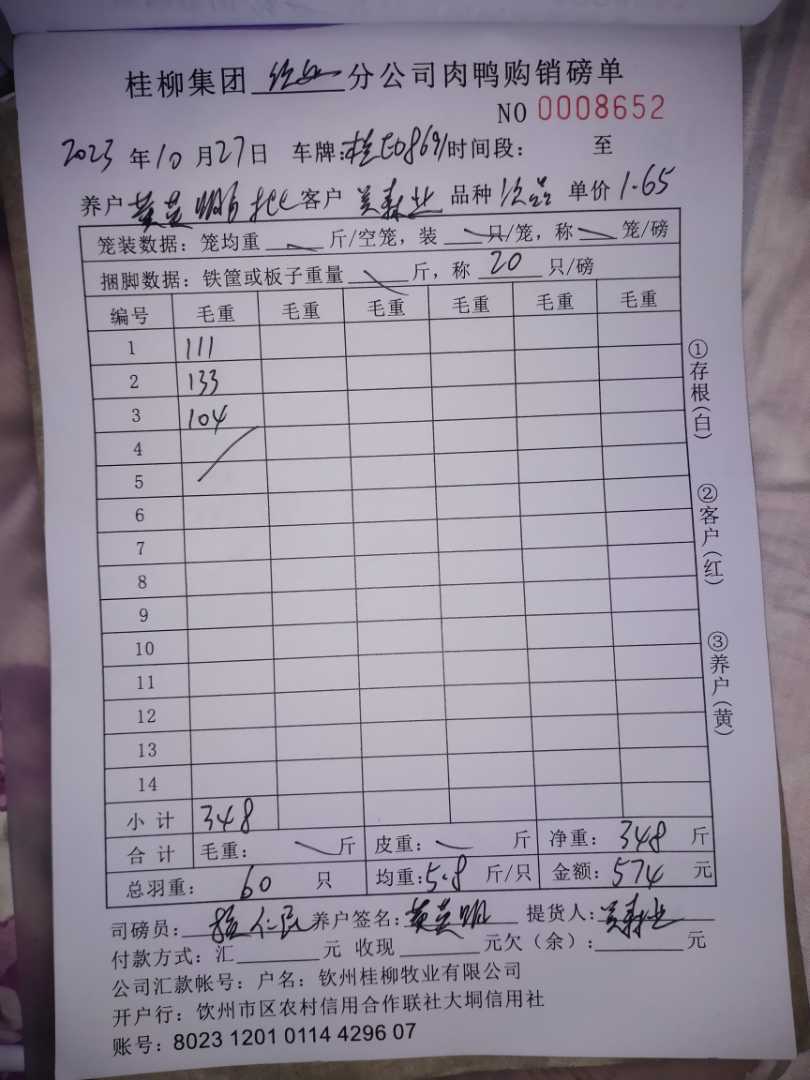 桂柳集团 分公司肉鸭购销磅单
NO 0008652
2023 年 10 月 27 日 车牌:桂E08691 时间段: 至
养户 黄 明 客户 吴森业 品种 次品 单价 1.65
笼装数据: 笼均重 斤/空笼, 装 只/笼, 称 笼/磅
捆脚数据: 铁筐或板子重量 斤, 称 20 只/磅
编号 毛重 毛重 毛重 毛重 毛重 毛重
1 111
2 133
3 104
4
5
6
7
8
9
10
11
12
13
14
小计 348
合计 毛重: 斤 皮重: 斤 净重: 348 斤
总羽重: 60 只 均重: 5.8 斤/只 金额: 574 元
司磅员: 仁民 养户签名: 黄 明 提货人: 吴森业
付款方式: 汇 元 收现 元欠(余): 元
公司汇款帐号: 户名: 钦州桂柳牧业有限公司
开户行: 钦州市区农村信用合作联社大垌信用社
账号: 8023 1201 0114 4296 07
①存根(白)
②客户(红)
③养户(黄)